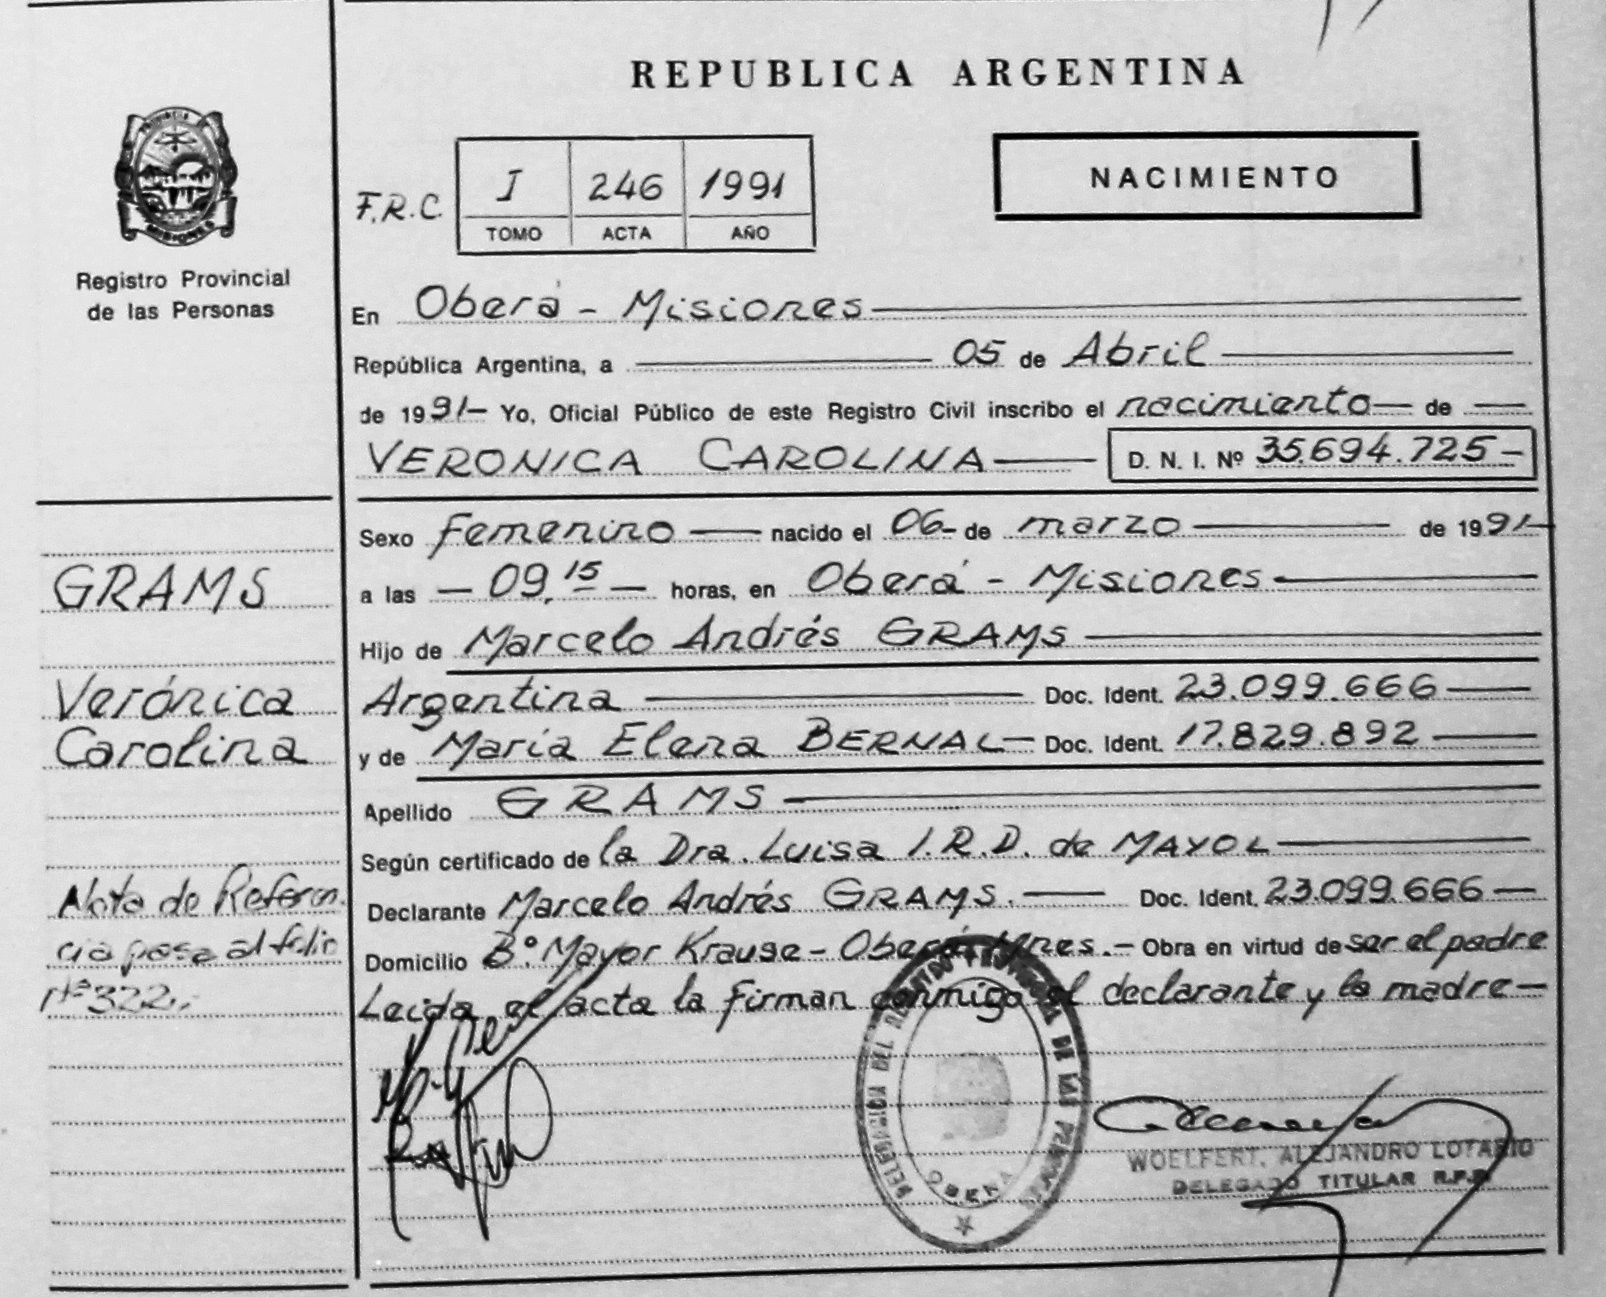 REPUBLICA ARGENTINA
PROVINCIA DE
MISIONES
Registro Provincial
de las Personas
F.R.C.
I 246 1991
TOMO ACTA AÑO
NACIMIENTO
En Oberá - Misiones
República Argentina, a 05 de Abril
de 1991- Yo, Oficial Público de este Registro Civil inscribo el nacimiento de
VERONICA CAROLINA D. N. I. Nº 35.694.725-
Sexo Femenino nacido el 06- de marzo de 1991-
a las - 09,15 - horas, en Oberá - Misiones
Hijo de Marcelo Andrés GRAMS
Argentina Doc. Ident. 23.099.666
y de María Elena BERNAL Doc. Ident. 17.829.892
Apellido GRAMS
Según certificado de la Dra. Luisa I.R.D. de MAYOL
Declarante Marcelo Andrés GRAMS. Doc. Ident. 23.099.666
Domicilio Bº. Mayor Krause - Oberá Mnes. - Obra en virtud de ser el padre
Leida el acta la firman conmigo el declarante y la madre
GRAMS
Verónica
Carolina
Nota de Referen
cia pasa al folio
Nº 322.-
DELEGACION DEL REGISTRO PROVINCIAL DE LAS PERSONAS
OBERA
WOELFERT, ALEJANDRO LOTARIO
DELEGADO TITULAR R.P.P.